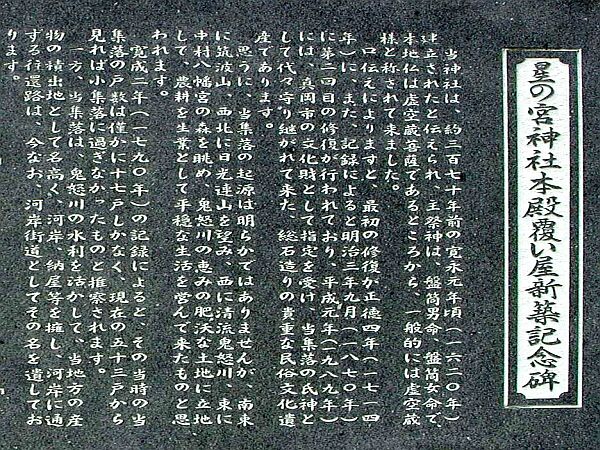 星の宮神社本殿覆い屋新築記念碑
当神社は、約三百七十年前の寛永元年頃(一六二〇年)
建立されたと伝えられ、主祭神は、盤筒男命、盤筒女命で
本地仏は虚空蔵菩薩であるところから、一般的には虚空蔵
様と称されて来ました。
口伝えによりますと、最初の修復が正徳四年(一七一四
年)に、また、記録によると明治三年九月(一八七〇年)
に第二回目の修復が行われており、平成元年(一九八九年)
には、真岡市の文化財として指定を受け、当集落の氏神と
して代々守り継がれて来た、総石造りの貴重な民俗文化遺
産であります。
思うに、当集落の起源は明らかではありませんが、南東
に筑波山、西北に日光連山を望み、西に清流鬼怒川、東に
中村八幡宮の森を眺め、鬼怒川の恵みの肥沃な土地に立地
して、農耕を生業として平穏な生活を営んで来たものと思
われます。
寛成二年(一七九〇年)の記録によると、その当時の当
集落の戸数は僅かに十七戸しかなく、現在の五十三戸から
見れば小集落に過ぎなかったものと推察されます。
一方、当集落は、鬼怒川の水利を活かして、当地方の産
物の積出地として名高く、河岸、納屋等を擁し、河岸に通
ずる往還路は、今なお、河岸街道としてその名を遺してお
ります。